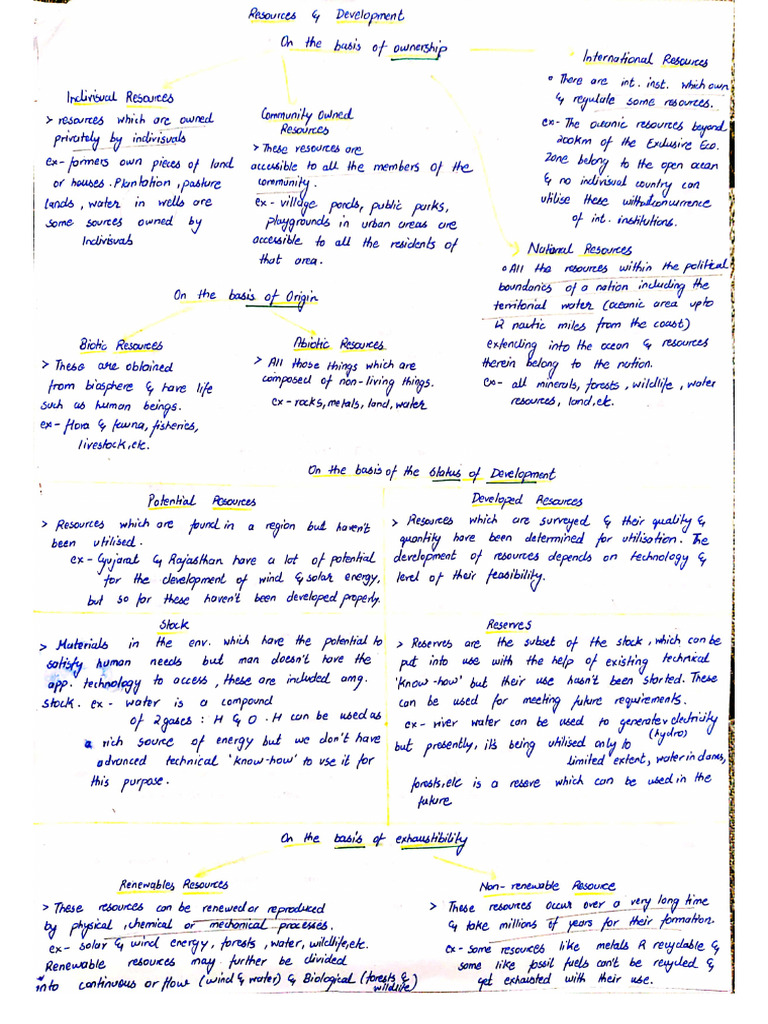 Resources & Development
On the basis of ownership
Indivisual Resources
> resources which are owned
privately by indivisuals
ex- farmers own pieces of land
or houses. Plantation, pasture
lands, water in wells are
some sources owned by
Indivisuals
Community Owned
Resources
> These resources are
accessible to all the members of the
community.
ex- village ponds, public parks,
playgrounds in urban areas are
accessible to all the residents of
that area.
International Resources
• There are int. inst. which own
& regulate some resources.
ex- The oceanic resources beyond
200km of the Exclusive Eco.
Zone belong to the open ocean
& no indivisual country can
utilise these without concurrence
of int. institutions.
National Resources
• All the resources within the political
boundaries of a nation including the
territorial water (oceanic area upto
12 nautic miles from the coast)
extending into the ocean & resources
therein belong to the nation.
ex- all minerals, forests, wildlife, water
resources, land, etc.
On the basis of Origin
Biotic Resources
> These are obtained
from biosphere & have life
such as human beings.
ex- flora & fauna, fisheries,
livestock, etc.
Abiotic Resources
> All those things which are
composed of non-living things.
ex- rocks, metals, land, water
On the basis of the Status of Development
Potential Resources
> Resources which are found in a region but haven't
been utilised.
ex- Gujarat & Rajasthan have a lot of potential
for the development of wind & solar energy,
but so far these haven't been developed properly.
Developed Resources
> Resources which are surveyed & their quality &
quantity have been determined for utilisation. The
development of resources depends on technology &
level of their feasibility.
Stock
> Materials in the env. which have the potential to
satisfy human needs but man doesn't have the
app. technology to access, these are included amg.
stock. ex- water is a compound
of 2 gases : H & O. H can be used as
a rich source of energy but we don't have
advanced technical 'know-how' to use it for
this purpose.
Reserves
> Reserves are the subset of the stock, which can be
put into use with the help of existing technical
'know-how' but their use hasn't been started. These
can be used for meeting future requirements.
ex- river water can be used to generate electricity
(hydro)
but presently, it's being utilised only to
limited extent, water in dams,
forests, etc is a reserve which can be used in the
future
On the basis of exhaustibility
Renewables Resources
> These resources can be renewed or reproduced
by physical, chemical or mechanical processes.
ex- solar & wind energy, forests, water, wildlife, etc.
Renewable resources may further be divided
into continuous or flow (wind & water) & Biological (forests &
wildlife)
Non-renewable Resource
> These resources occur over a very long time
& take millions of years for their formation.
ex- some resources like metals R recyclable &
some like fossil fuels can't be recycled &
get exhausted with their use.